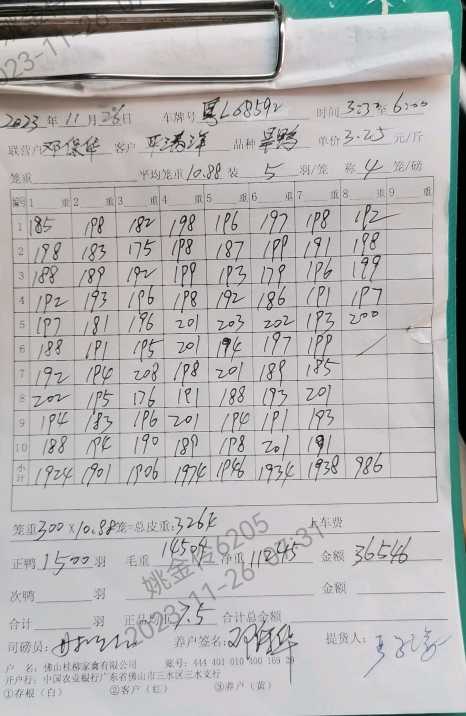 2023年11月26日 车牌号 粤L68592 时间3:33至6:00
联营户邓保华 客户 品种 单价3.25元/斤
笼重 平均笼重10.88 装 5 羽/笼 称 4 笼/磅
编号 1 重 2 重 3 重 4 重 5 重 6 重 7 重 8 重 9 重
1 185 198 182 198 196 197 198 192
2 198 183 175 198 187 199 191 198
3 188 189 192 199 193 179 196 199
4 192 193 196 198 192 186 191 197
5 197 181 196 201 203 202 193 200
6 188 191 195 201 194 197 199 /
7 192 194 208 198 201 189 185
8 202 195 176 191 188 193 201
9 194 183 196 201 194 191 193
10 188 194 190 189 198 201 191
小计 1924 1901 1906 1974 1946 1934 1938 986
笼重300×10.88笼=总皮重:3264 上车费
正鸭1500羽 毛重14509 净重11245 金额36546
次鸭 羽 金额
合计 羽 正品均重7.5 合计总金额
司磅员: 养户签名:邓保华 提货人:
户 名:佛山桂柳家禽有限公司 账号:444 401 010 400 169 29
开户行:中国农业银行广东省佛山市三水区三水支行
①存根(白) ②客户(红) ③养户(黄)
姚金伶6205
2023-11-26 07:31